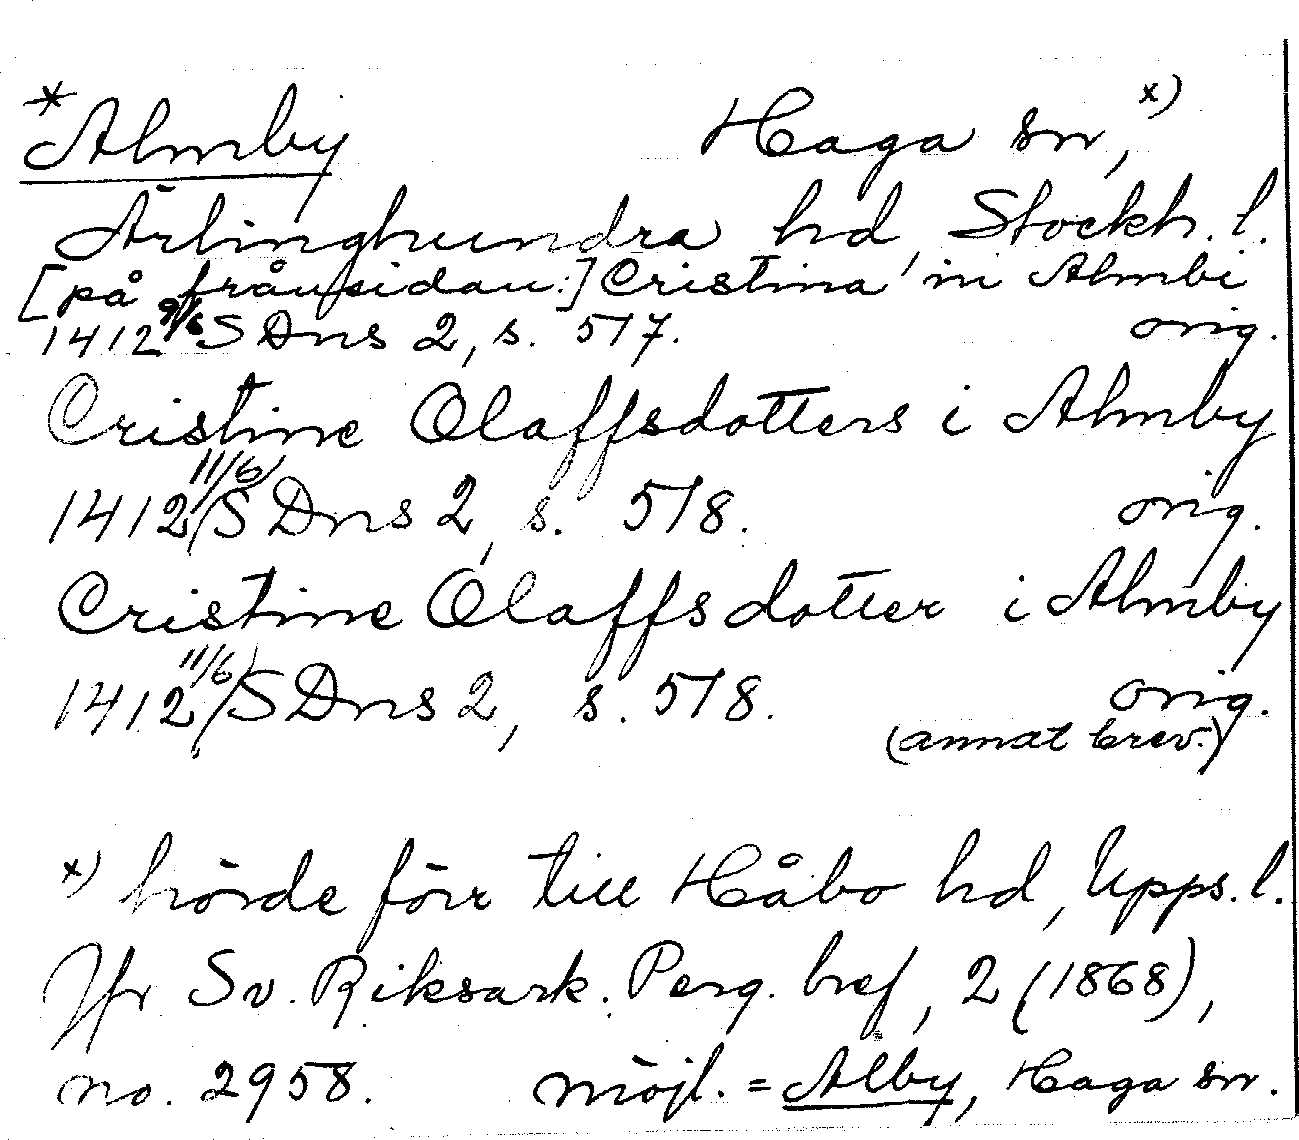 *Almby Haga sn, x)
Ärlinghundra hd, Stockh. l.
[på frånsidan:] Cristina in Almbi
1412 9/6 SDns 2, s. 517. orig.
Cristine Olaffsdotters i Almby
1412 11/6 SDns 2, s. 518. orig.
Cristine Olaffsdotter i Almby
1412 11/6 SDns 2, s. 518. orig.
(annat brev.)
x) hörde förr till Håbo hd, Upps. l.
Jfr Sv. Riksark. Perg. bref, 2 (1868),
no. 2958. möjl. = Alby, Haga sn.